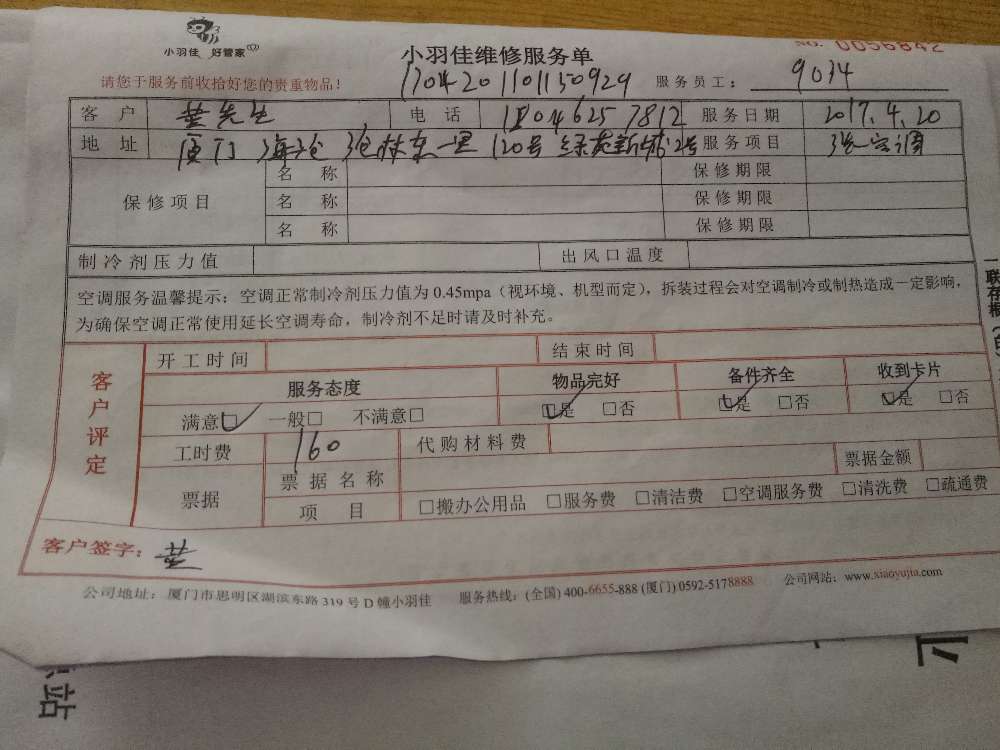 小羽佳 好管家
小羽佳维修服务单
NO. 0056842
请您于服务前收拾好您的贵重物品！
1704201101150929 服务员工： 9034
客 户 先生 电 话 18046257812 服务日期 2017.4.20
地 址 厦门 海沧 沧林东一里 120号 绿苑新城2号 服务项目 洗空调
保修项目 名 称 保修期限
名 称 保修期限
名 称 保修期限
制冷剂压力值 出风口温度
空调服务温馨提示：空调正常制冷剂压力值为0.45mpa（视环境、机型而定），拆装过程会对空调制冷或制热造成一定影响，
为确保空调正常使用延长空调寿命，制冷剂不足时请及时补充。
客户评定
开工时间 结束时间
服务态度 物品完好 备件齐全 收到卡片
满意□ 一般□ 不满意□ □是 □否 □是 □否 □是 □否
工时费 160 代购材料费
票据 票据名称 票据金额
项 目 □搬办公用品 □服务费 □清洁费 □空调服务费 □清洗费 □疏通费
客户签字：
公司地址：厦门市思明区湖滨东路319号D幢小羽佳 服务热线：(全国) 400-6655-888 (厦门) 0592-5178888 公司网站：www.xiaoyujia.com
一联存根